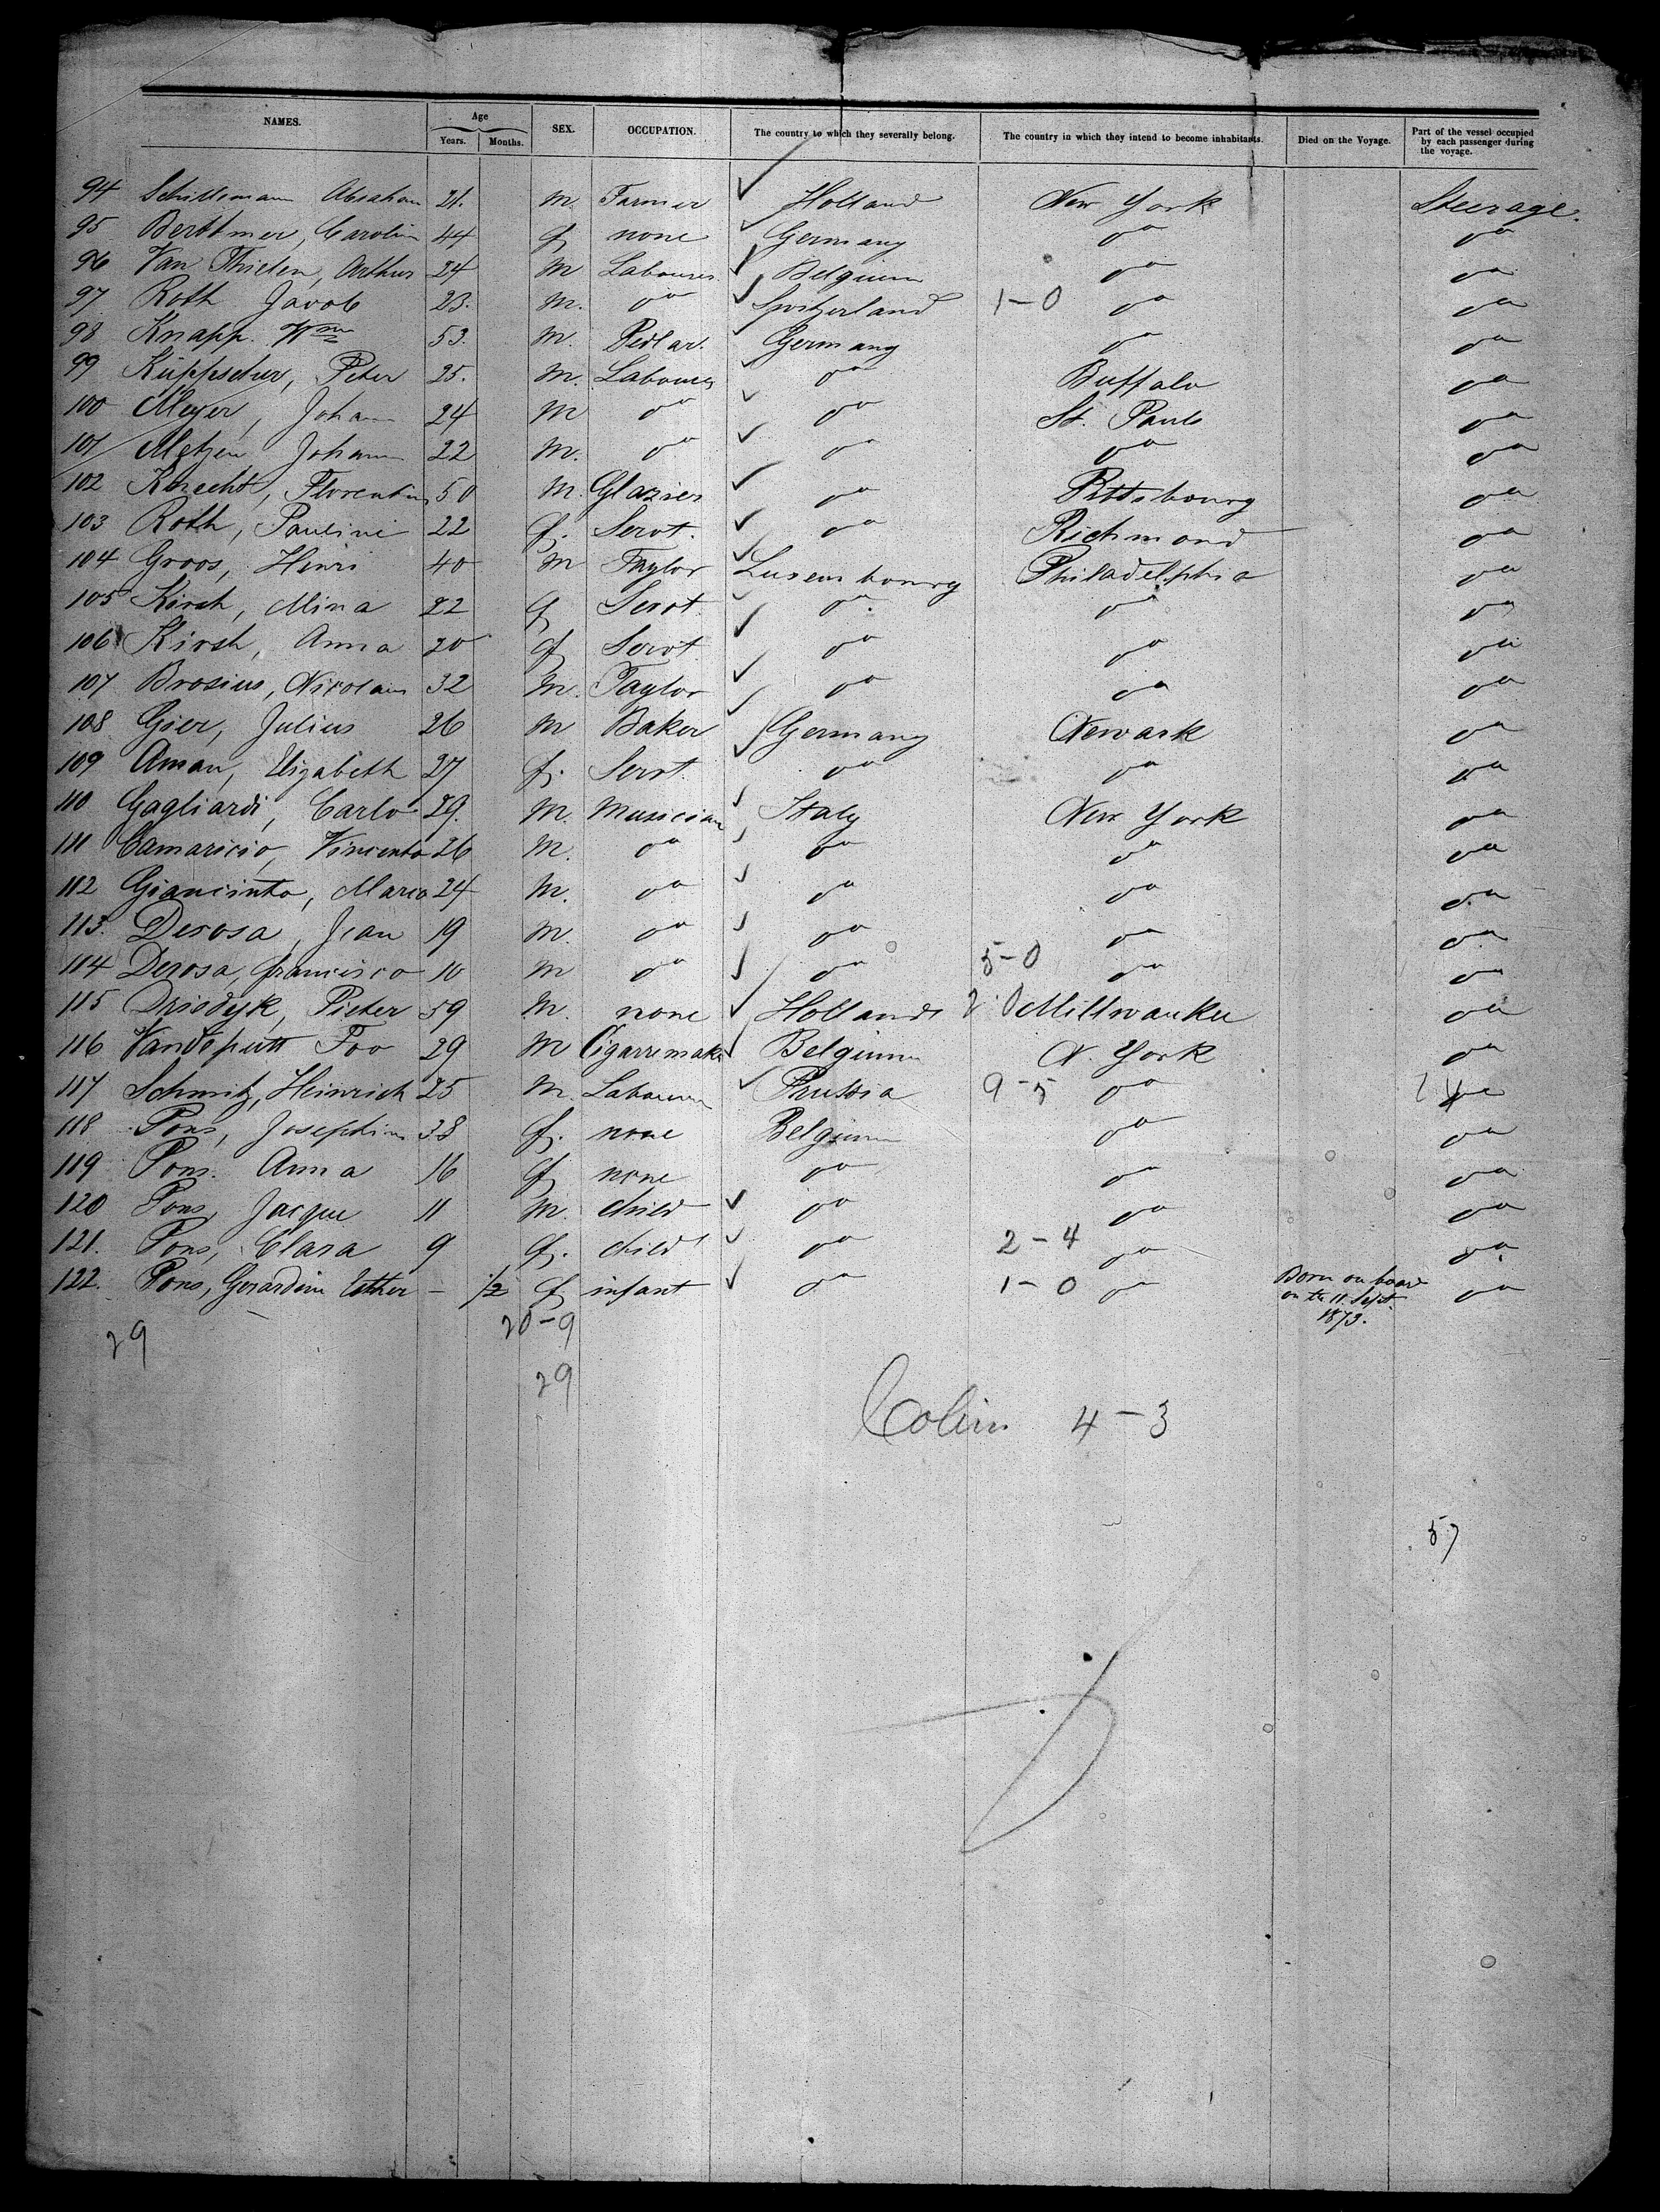 NAMES. Age Years. Months. SEX. OCCUPATION. The country to which they severally belong. The country in which they intend to become inhabitants. Died on the Voyage. Part of the vessel occupied by each passenger during the voyage.
94 Abraham 21. m. Farmer Holland New York Steerage.
95 Berttmer, Carolin 44 f none Germany do do
96 Van Thielen, Arthur 24 m Labourer Belgium do do
97 Roth Jacob 23. m. do Switzerland 1-0 do do
98 Knapp. Wm 53. m. Pedlar. Germany do do
99 Peter 25. m. Labourer do Buffalo do
100 Meyer, Johann 24 m do do St. Pauls do
101 Metzen Johann 22 m. do do do do
102 Knecht, Florentin 50 m. Glazier do Pittsbourg do
103 Roth, Pauline 22 f. Servt. do Richmond do
104 Groos, Henri 40 m Taylor Luxembourg Philadelphia do
105 Kirsh, Mina 22 f Servt. do. do do
106 Kirsh, Anna 20 f Servt do do do
107 Brosius, Nicolaus 32 m. Taylor do do do
108 Gier, Julius 26 m Baker Germany Newark do
109 Aman, Elizabeth 27 f. Servt. do do do
110 Gagliardi, Carlo 29. m. Musician Italy New York do
111 Camaricio, Vincento 26 m. do do do do
112 Giancinto, Maria 24 m. do do do do
113. Derosa, Jean 19 m. do do do do
114 Derosa, francisco 10 m do do 5-0 do do
115 Pieter 59 m. none Holland 2 0 Millwaukee do
116 29 m Cigarremaker Belgium N. York do
117 Schmitz, Heinrich 25 m. Labourer Prussia 9-5 do
118 Pons, Josephine 38 f. none Belgium do do
119 Pons. Anna 16 f none do do do
120 Pons, Jacque 11 m. child do do do
121. Pons, Clara 9 f. child do 2-4 do do
122. Pons, Gerardine Esther - 1/2 f infant do 1-0 do Born on board on the 11. Sept. 1873. do
20-9
29
29
4-3
57